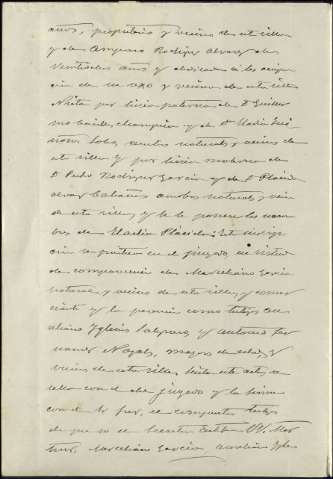 años, propietario y vecino de esta villa
y de Amparo Rodríguez Alvarez de
veintidos años y dedicada a las ocupa
ciones de su sexo y vecina de esta villa
Nieta por línea paterna de D. Guiller
mo y de Dª María
Lobo, ambos naturales y vecinos de
esta villa y por línea materna de
D. Pedro Rodríguez García y de Dª Placida
Alvarez ambos naturales y vecin
de esta villa y se le ponen los nom
bres de Martín Placido: Esta inscrip
ción se practica en el juzgado en virtud
de comparecencia de Marcelino García
natural y vecino de esta villa, y comer
ciante y la presencian como testigos au
reliano Yglesias y Antonio Fer
nandez Nogales, mayores de edad, y
vecinos de esta villa. Leida esta acta, se
sella con el del juzgado y la firma
con el Sr Juez, el compareciente testigos
de que yo el Secretario Certifico = Mar
Marcelino García, Aureliano Ygle